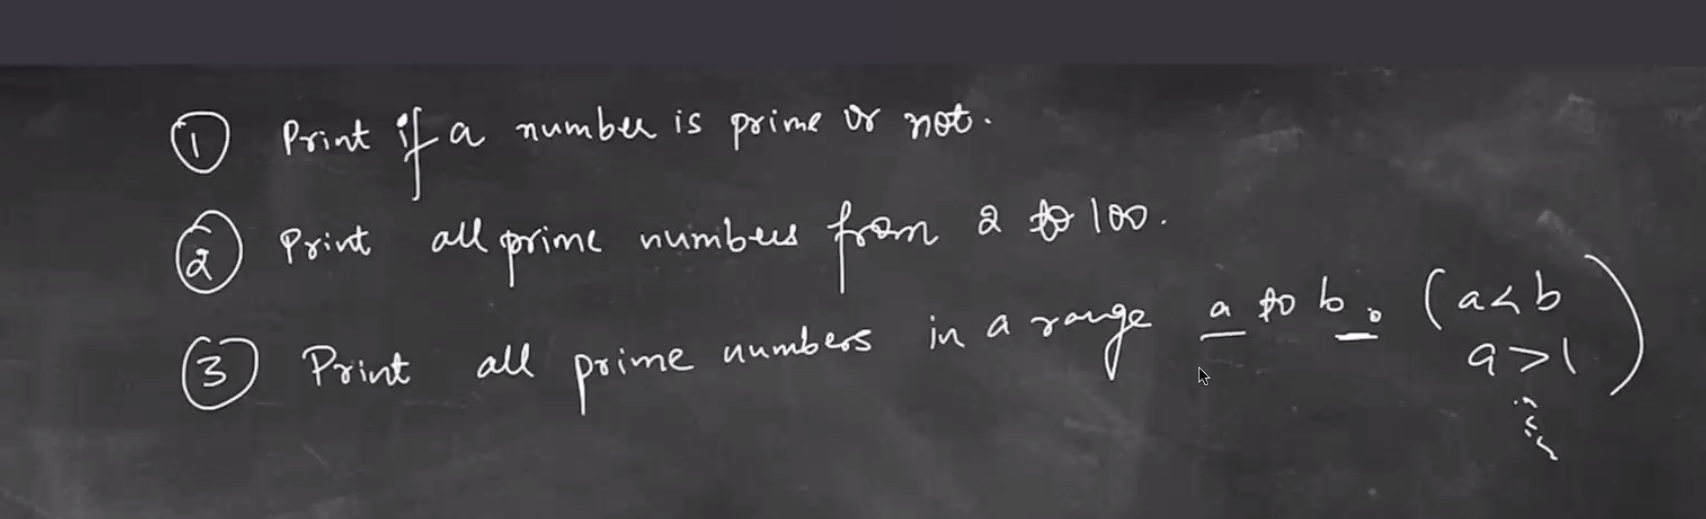 ① Print if a number is prime or not.
② Print all prime numbers from 2 to 100.
③ Print all prime numbers in a range a to b. (a<b
a>1)